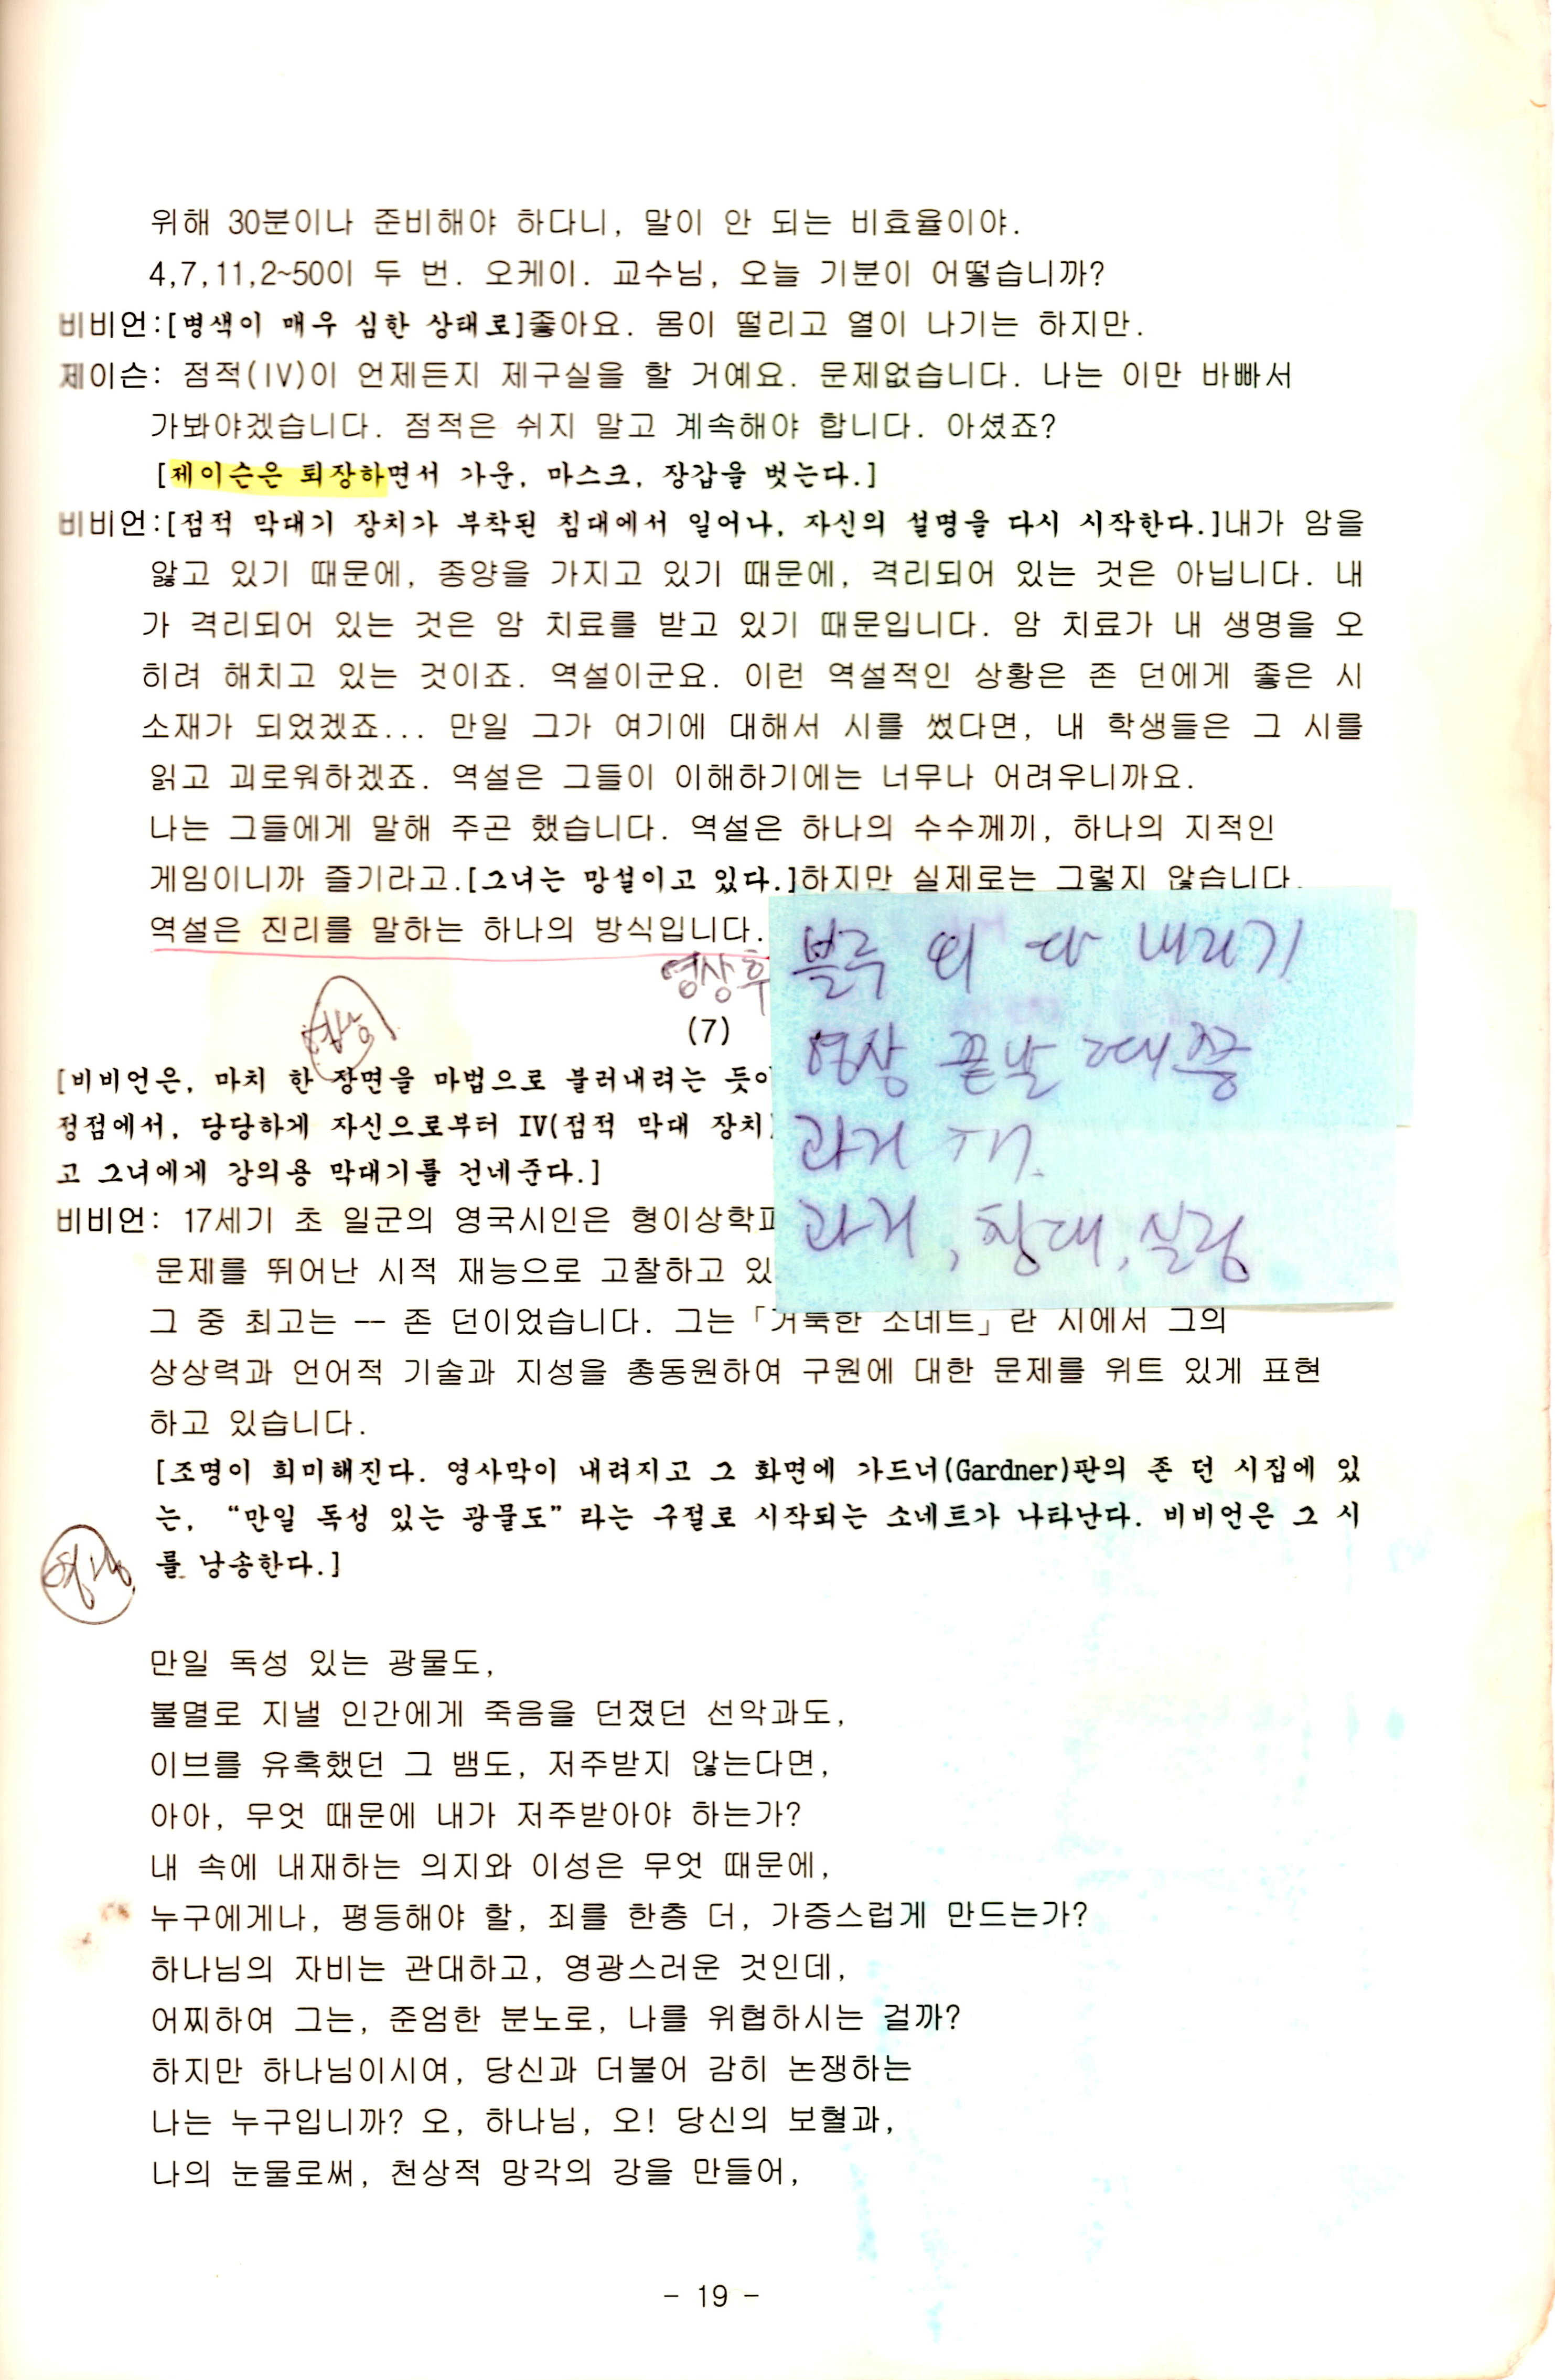 위해 30분이나 준비해야 하다니, 말이 안 되는 비효율이야.
4,7,11,2~50이 두 번. 오케이. 교수님, 오늘 기분이 어떻습니까?
비비언:[병색이 매우 심한 상태로]좋아요. 몸이 떨리고 열이 나기는 하지만.
제이슨: 점적(IV)이 언제든지 제구실을 할 거예요. 문제없습니다. 나는 이만 바빠서
가봐야겠습니다. 점적은 쉬지 말고 계속해야 합니다. 아셨죠?
[제이슨은 퇴장하면서 가운, 마스크, 장갑을 벗는다.]
비비언:[점적 막대기 장치가 부착된 침대에서 일어나, 자신의 설명을 다시 시작한다.]내가 암을
앓고 있기 때문에, 종양을 가지고 있기 때문에, 격리되어 있는 것은 아닙니다. 내
가 격리되어 있는 것은 암 치료를 받고 있기 때문입니다. 암 치료가 내 생명을 오
히려 해치고 있는 것이죠. 역설이군요. 이런 역설적인 상황은 존 던에게 좋은 시
소재가 되었겠죠... 만일 그가 여기에 대해서 시를 썼다면, 내 학생들은 그 시를
읽고 괴로워하겠죠. 역설은 그들이 이해하기에는 너무나 어려우니까요.
나는 그들에게 말해 주곤 했습니다. 역설은 하나의 수수께끼, 하나의 지적인
게임이니까 즐기라고.[그녀는 망설이고 있다.]하지만 실제로는 그렇지 않습니다.
역설은 진리를 말하는 하나의 방식입니다.
영상 후
블루 외 다 내리기
영상 끝날 때쯤
과거
과거, 침대, 실링
(7)
[비비언은, 마치 한 장면을 마법으로 불러내려는 듯이
정점에서, 당당하게 자신으로부터 IV(점적 막대 장치)
고 그녀에게 강의용 막대기를 건네준다.]
비비언: 17세기 초 일군의 영국시인은 형이상학파
문제를 뛰어난 시적 재능으로 고찰하고 있
그 중 최고는 -- 존 던이었습니다. 그는「거룩한 소네트」란 시에서 그의
상상력과 언어적 기술과 지성을 총동원하여 구원에 대한 문제를 위트 있게 표현
하고 있습니다.
[조명이 희미해진다. 영사막이 내려지고 그 화면에 가드너(Gardner)판의 존 던 시집에 있
는, “만일 독성 있는 광물도” 라는 구절로 시작되는 소네트가 나타난다. 비비언은 그 시
를 낭송한다.]
영상
만일 독성 있는 광물도,
불멸로 지낼 인간에게 죽음을 던졌던 선악과도,
이브를 유혹했던 그 뱀도, 저주받지 않는다면,
아아, 무엇 때문에 내가 저주받아야 하는가?
내 속에 내재하는 의지와 이성은 무엇 때문에,
누구에게나, 평등해야 할, 죄를 한층 더, 가증스럽게 만드는가?
하나님의 자비는 관대하고, 영광스러운 것인데,
어찌하여 그는, 준엄한 분노로, 나를 위협하시는 걸까?
하지만 하나님이시여, 당신과 더불어 감히 논쟁하는
나는 누구입니까? 오, 하나님, 오! 당신의 보혈과,
나의 눈물로써, 천상적 망각의 강을 만들어,
- 19 -